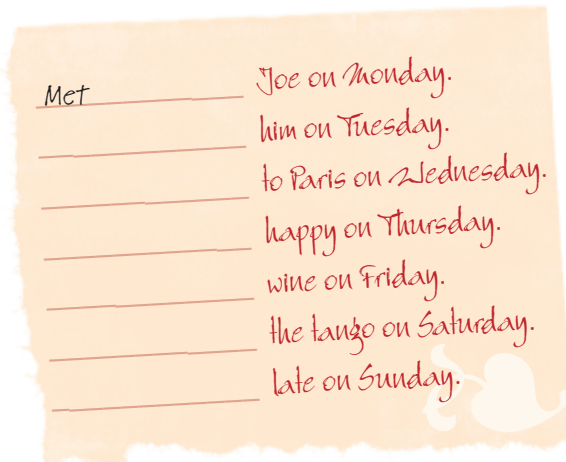 Met Joe on Monday.
him on Tuesday.
to Paris on Wednesday.
happy on Thursday.
wine on Friday.
the tango on Saturday.
late on Sunday.